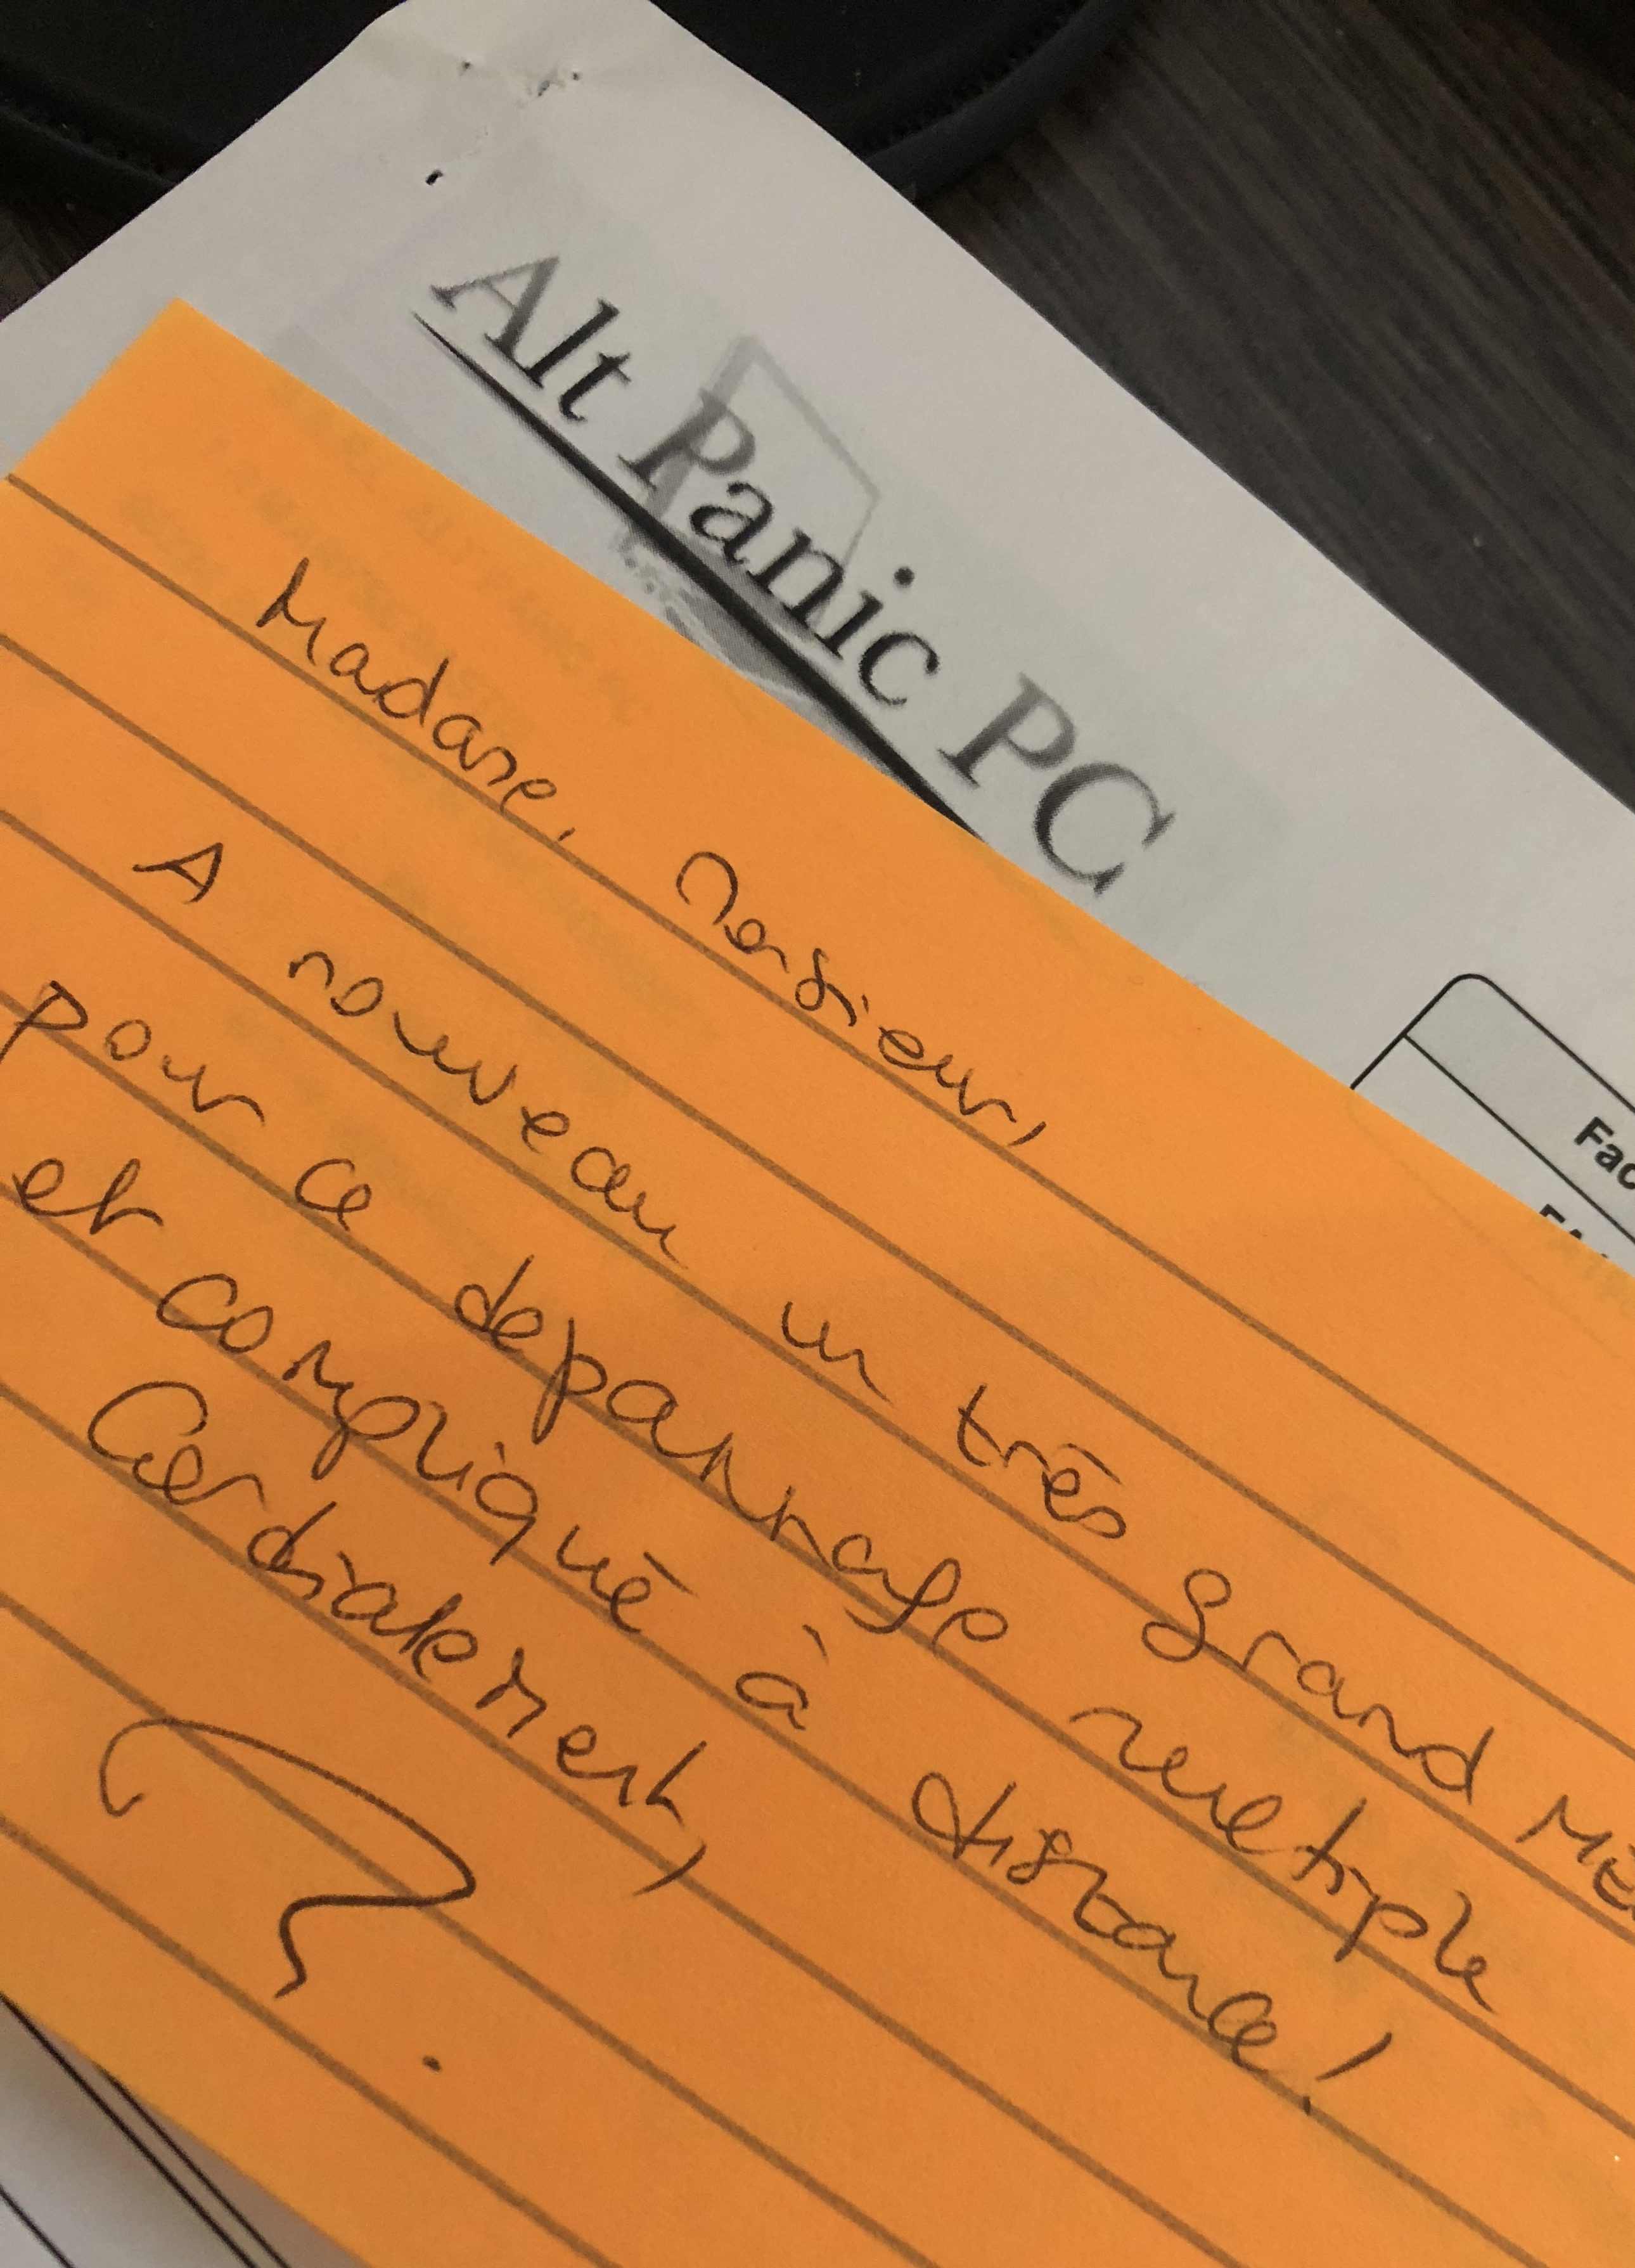 Alt Panic PC
Fac
Madame, Monsieur,
A nouveau un très grand
pour ce depannage multiple
et compliqué à distance !
Cordialement,